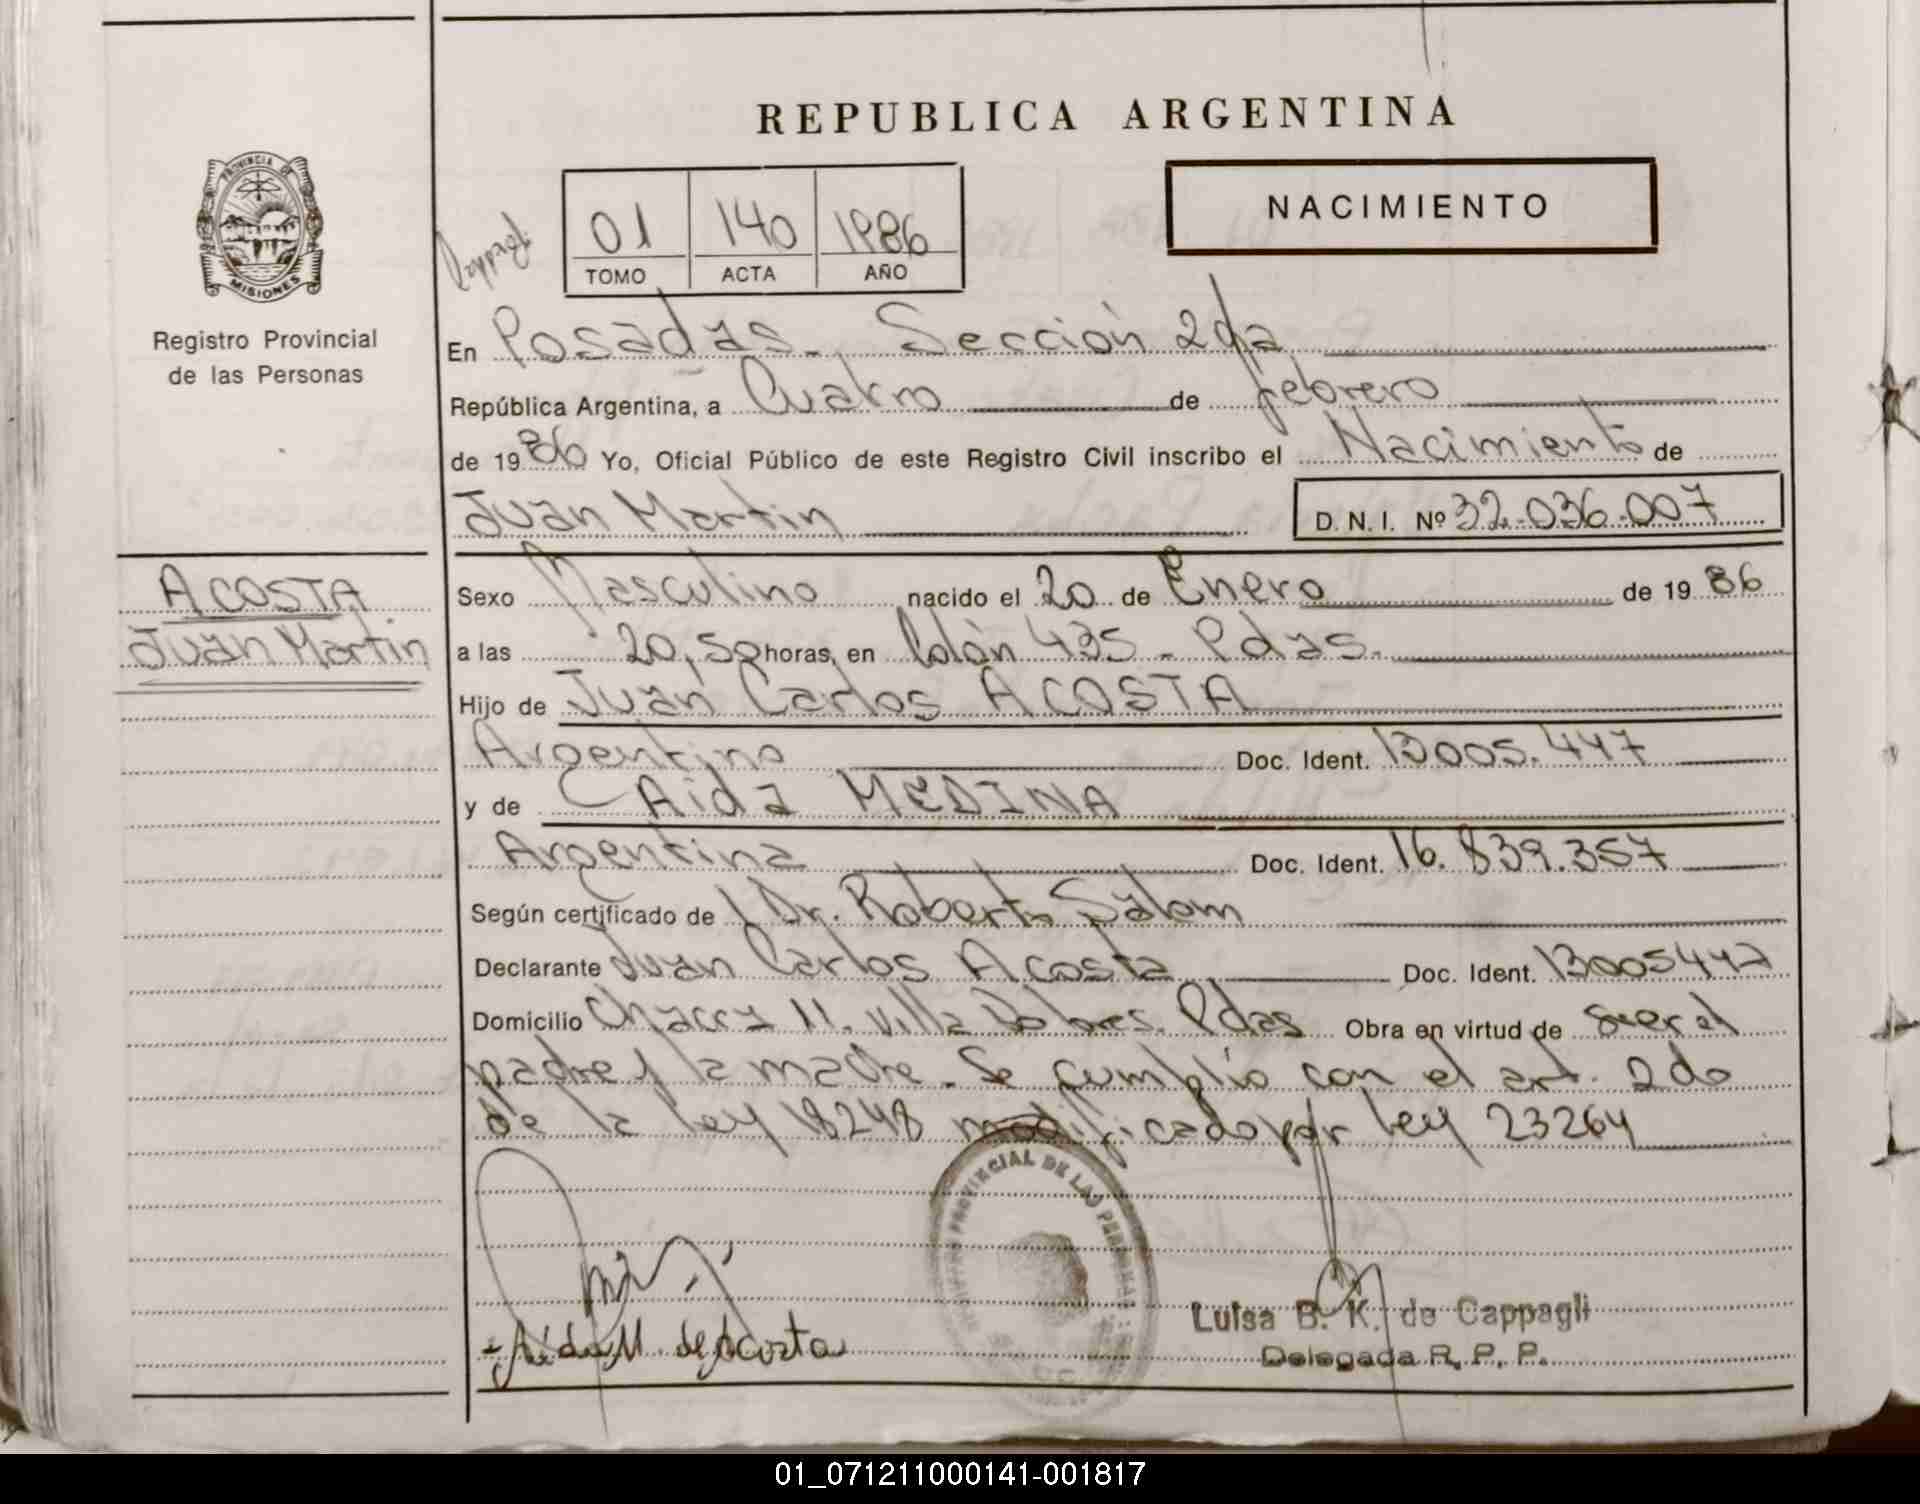 REPUBLICA ARGENTINA
PROVINCIA DE
MISIONES
Registro Provincial
de las Personas
01 140 1986
TOMO ACTA AÑO
NACIMIENTO
En Posadas. Sección 2da
República Argentina, a Cuatro de febrero
de 1986 Yo, Oficial Público de este Registro Civil inscribo el Nacimiento de
Juan Martin D.N.I. Nº 32.036.007
ACOSTA
Juan Martin
Sexo Masculino nacido el 20 de Enero de 1986
a las 20,50 horas, en Colón 435 - Pdas.
Hijo de Juan Carlos ACOSTA
Argentino Doc. Ident. 13005.447
y de Aida MEDINA
Argentina Doc. Ident. 16.839.357
Según certificado de Dr. Roberto Salom
Declarante Juan Carlos Acosta Doc. Ident. 13005447
Domicilio Chacra 11. Villa Dolores. Pdas Obra en virtud de ser el
padre y la madre. Se cumplió con el art. 2do
de la ley 18248 modificado por ley 23264
PROVINCIAL DE LAS PERSONAS
Aida M. de Acosta
Luisa B. K. de Cappagli
Delegada R. P. P.
01_071211000141-001817